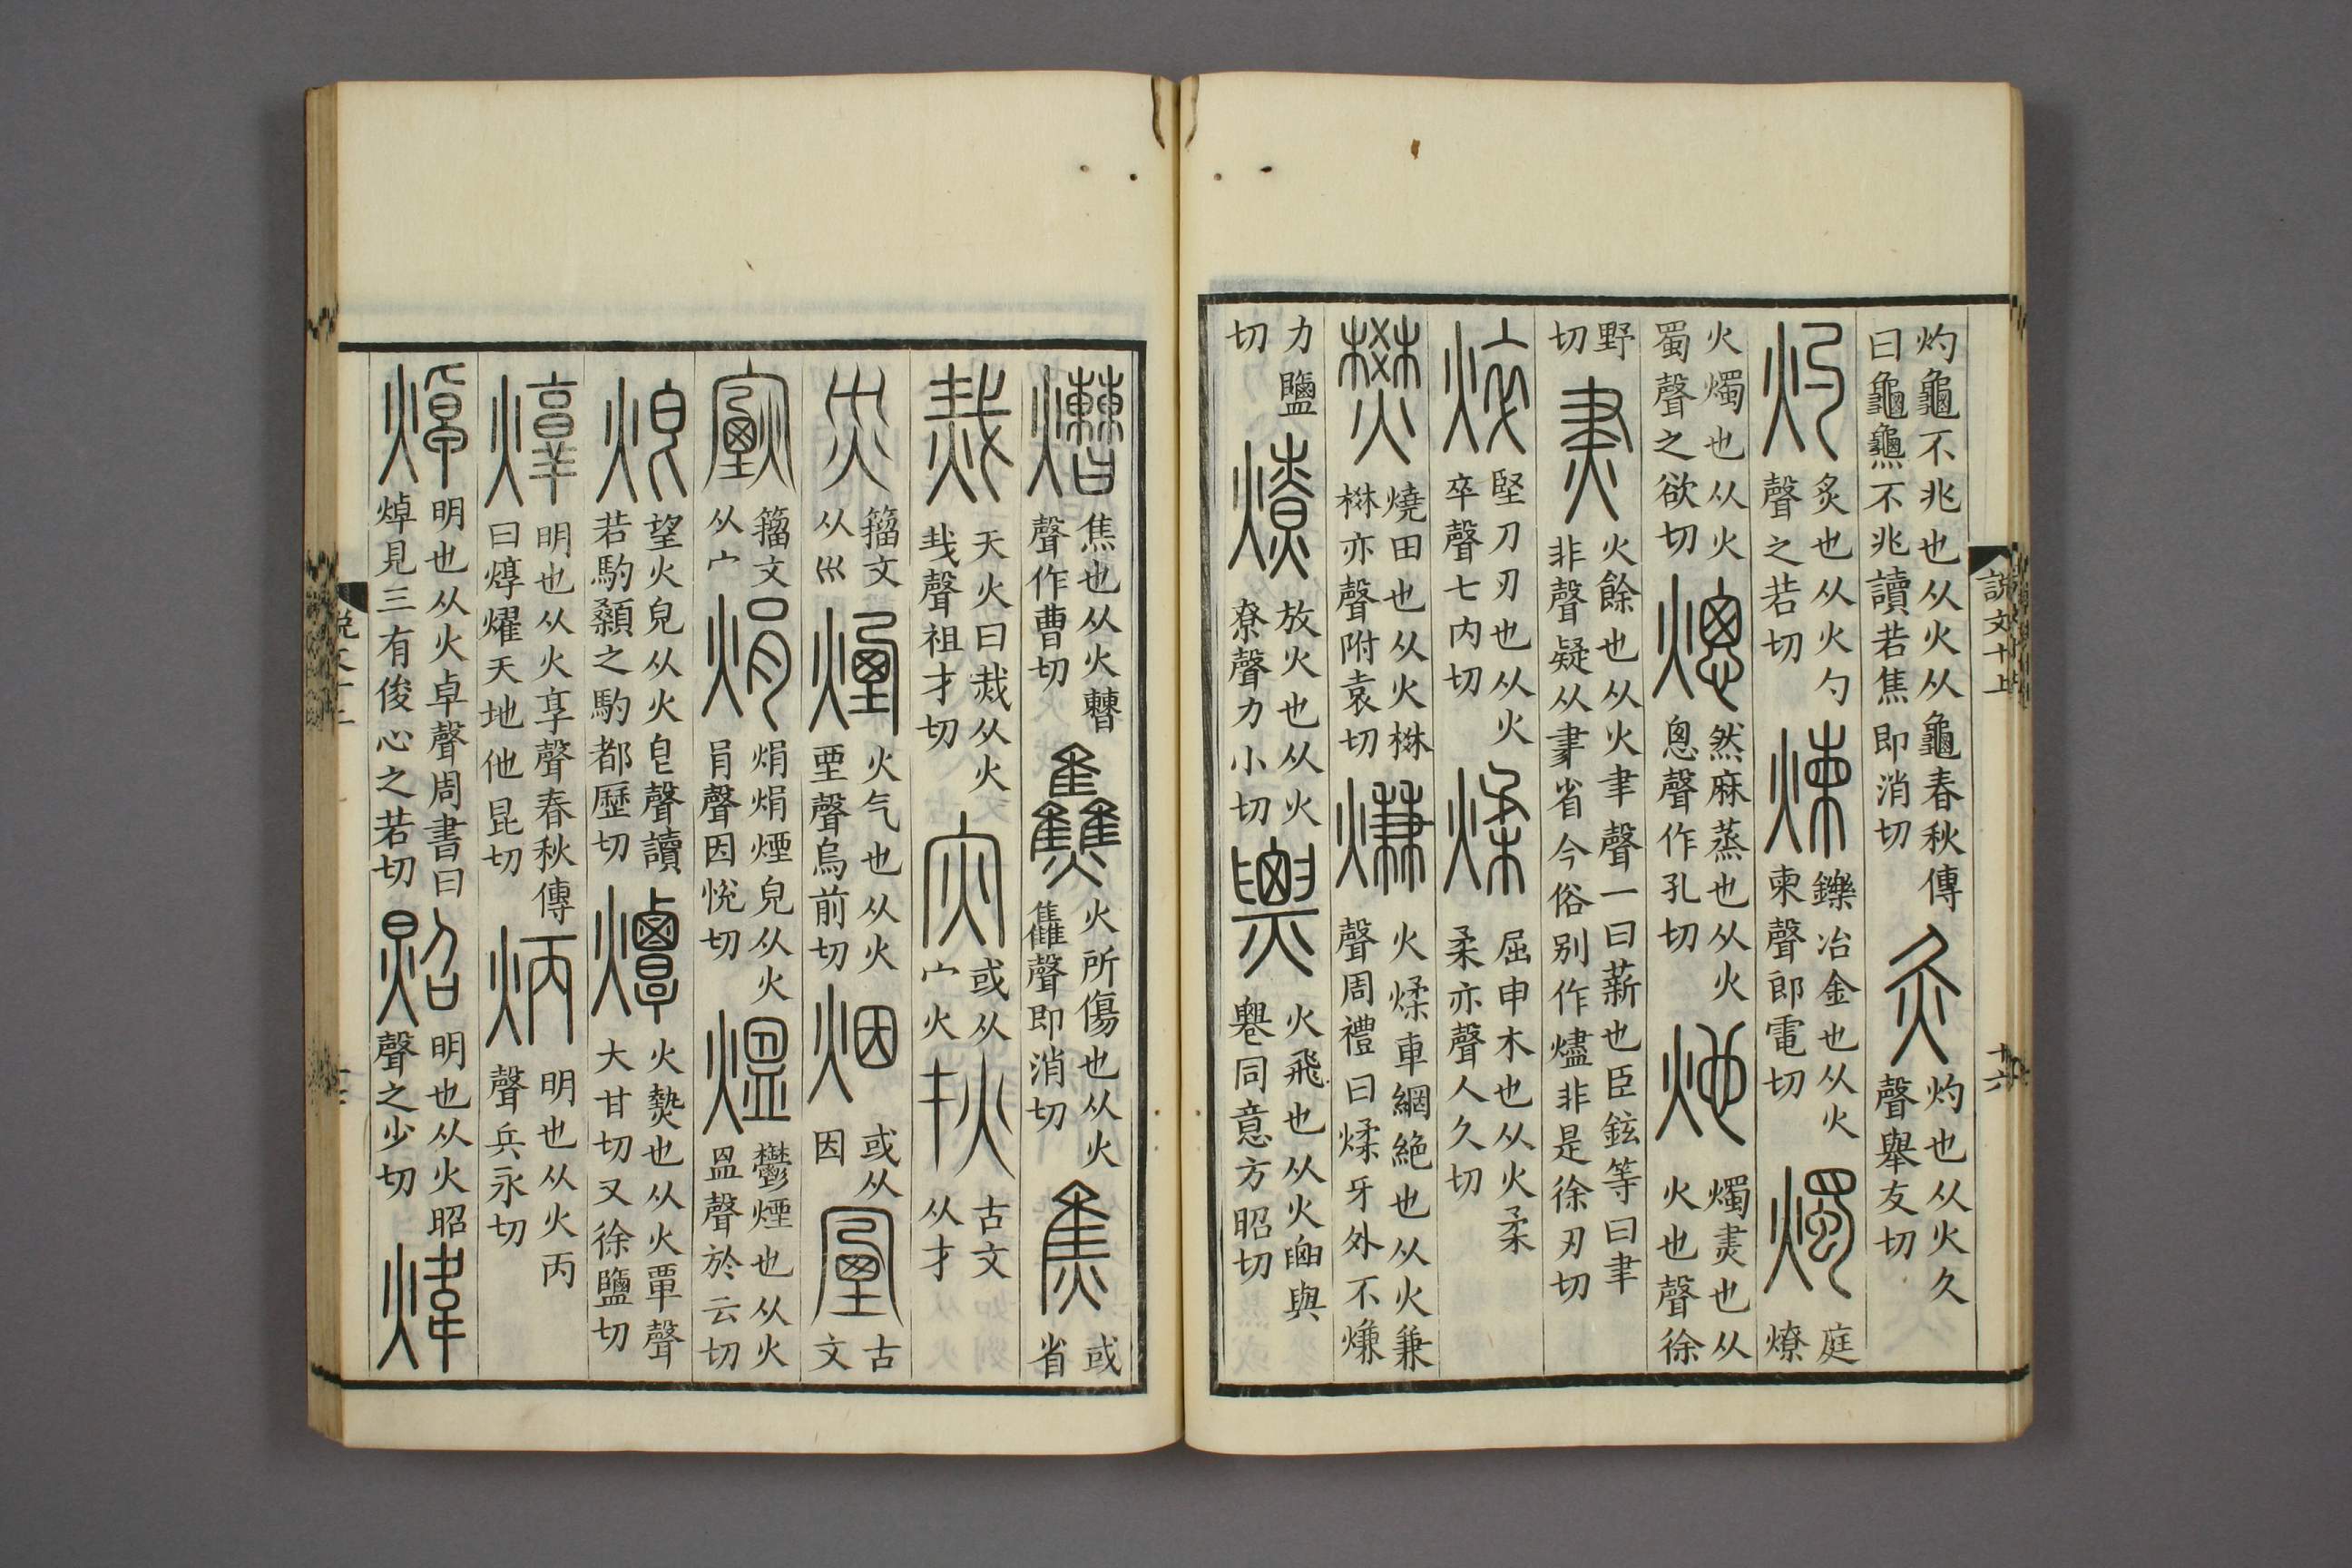 灼龜不兆也从火从龜春秋傳曰龜𤒅不兆讀若焦即消切 灸 灼也从火久聲舉友切
灼 炙也从火勺聲之若切 煉 鑠冶金也从火柬聲郎電切 燭 庭燎
火燭也从火蜀聲之欲切 熜 然麻蒸也从火悤聲作孔切 灺 燭㶳也从火也聲徐
野切 㶳 火餘也从火聿聲一曰薪也臣鉉等曰聿非聲疑从𦘔省今俗别作燼非是徐刃切
焠 堅刀刃也从火卒聲七内切 煣 屈申木也从火柔柔亦聲人久切
燓 燒田也从火棥棥亦聲附袁切 熑 火煣車網絶也从火兼聲周禮曰煣牙外不熑
力鹽切 燎 放火也从火尞聲力小切 㷠 火飛也从火與䙴同意方昭切
說文十上
十六
㷮 焦也从火聲作曹切 𤓪 火所傷也从火雥聲即消切 焦 或省
烖 天火曰烖从火𢦏聲祖才切 灾 或从宀火 𤆎 古文从才
災 籒文从巛 煙 火气也从火垔聲烏前切 烟 或从因 古文
籒文从宀 焆 焆焆煙皃从火肙聲因悅切 熅 鬱煙也从火𥁕聲於云切
望火皃从火皀聲讀若馰顙之馰都歷切 燂 火𤍽也从火覃聲大甘切又徐鹽切
焞 明也从火𦎫聲春秋傳曰焞燿天地他昆切 炳 明也从火丙聲兵永切
焯 明也从火卓聲周書曰焯見三有俊心之若切 照 明也从火昭聲之少切 煒